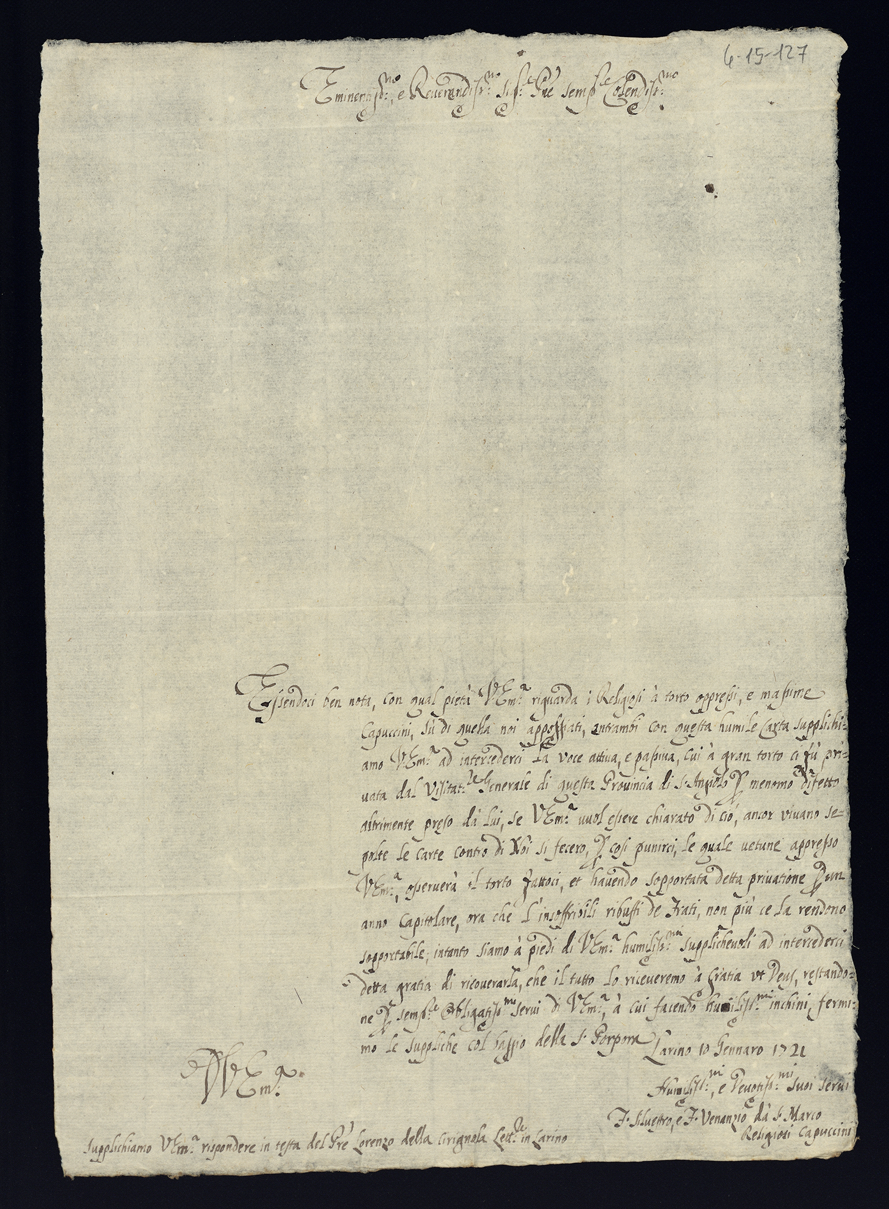 6-15-127
Eminentiss:mo, e Reverendiss:mo Sig:re Pře semp:re Colendiss:mo
Essendoci ben nota, con qual pietà V Em:a riguarda i Religiosi à torto oppressi, e massime
Capuccini, sù di questa noi appoggiati, entrambi con questa humile Carta supplichi=
amo V Em:a ad intercederci la voce attiva, e passiva, cui à gran torto ci fù pri=
vata dal Visitat:re Generale di questa Provincia di S. Angiolo p menomo difetto
altrimente preso dà lui, se V Em:a vuol essere chiarato di ciò, ancor vivano se=
polte le carte contro di Noi si fecero, p così punirci, le quale venute appresso
V Em:a, osserverà il torto fattoci, et havendo sopportata detta privatione p un
anno Capitolare, ora che l'insoffribili ributti de Frati, non più ce la rendono
sopportabile, intanto siamo à piedi di V Em:a humiliss:mi supplichevoli ad intercederci
detta gratia di ricoverarla, che il tutto lo riceveremo à Gratia vt Deus, restando=
ne p semp:re Obligatiss:mi servi di V Em:a, à cui facendo humiliss:mi inchini, fermi=
mo le suppliche col baggio della S. Porpora Larino 10 Gennaro 1721
Di V Em:a
Humiliss:mi, e Devotiss:mi Suoi Servi
F. Silvestro, e F. Venanzio dà S. Marco
Religiosi Capuccini
Supplichiamo V Em:a rispondere in testa del Pře Lorenzo della Cirignola in Larino